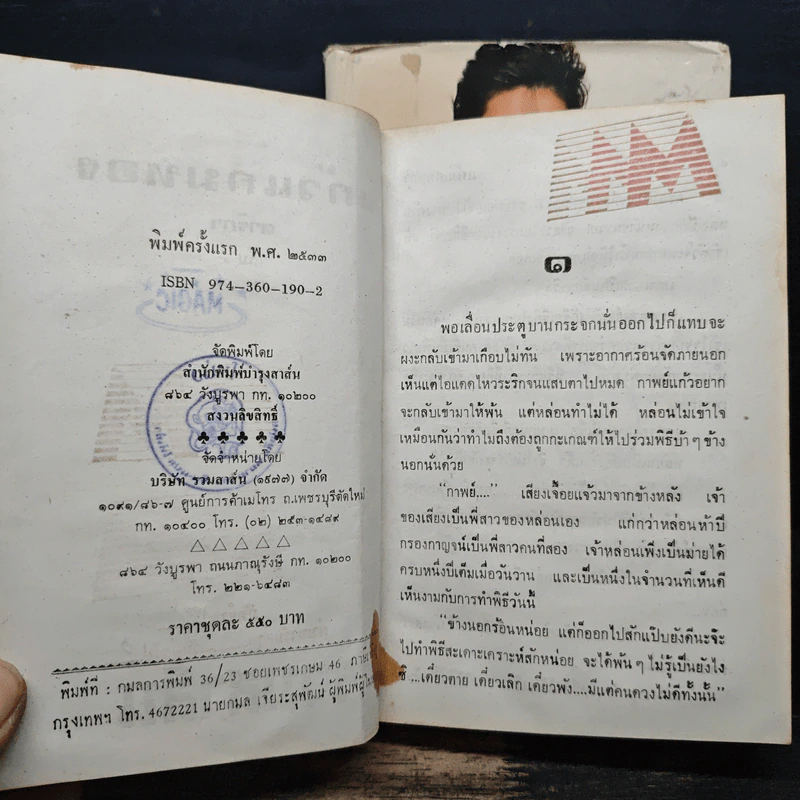 พิมพ์ครั้งแรก พ.ศ. ๒๕๓๓
ISBN 974-360-190-2
MAGIC
จัดพิมพ์โดย
สำนักพิมพ์บำรุงสาส์น
๘๖๔ วังบูรพา กท. ๑๐๒๐๐
สงวนลิขสิทธิ์
♣ ♣ ♣ ♣ ♣
จัดจำหน่ายโดย
บริษัท รวมสาส์น (๑๙๗๗) จำกัด
๑๐๙๑/๘๖-๗ ศูนย์การค้าเมโทร ถ.เพชรบุรีตัดใหม่
กท. ๑๐๔๐๐ โทร. (๐๒) ๒๕๓-๑๔๘๙
△ △ △ △ △
๘๖๔ วังบูรพา ถนนภาณุรังษี กท. ๑๐๒๐๐
โทร. ๒๒๑-๖๔๘๓
ราคาชุดละ ๕๕๐ บาท
พิมพ์ที่ : กมลการพิมพ์ 36/23 ซอยเพชรเกษม 46
กรุงเทพฯ โทร. 4672221 นายกมล เจียระสุพัฒน์
๑
พอเลื่อนประตูบานกระจกนั่นออกไปก็แทบจะ
ผงะกลับเข้ามาเกือบไม่ทัน เพราะอากาศร้อนจัดภายนอก
เห็นแต่ไอแดดไหวระริกจนแสบตาไปหมด กาพย์แก้วอยาก
จะกลับเข้ามาให้พ้น แต่หล่อนทำไม่ได้ หล่อนไม่เข้าใจ
เหมือนกันว่าทำไมถึงต้องถูกกะเกณฑ์ให้ไปร่วมพิธีบ้า ๆ ข้าง
นอกนั่นด้วย
“กาพย์....” เสียงเจื้อยแจ้วมาจากข้างหลัง เจ้า
ของเสียงเป็นพี่สาวของหล่อนเอง แก่กว่าหล่อนห้าปี
กรองกาญจน์เป็นพี่สาวคนที่สอง เจ้าหล่อนเพิ่งเป็นม่ายได้
ครบหนึ่งปีเต็มเมื่อวันวาน และเป็นหนึ่งในจำนวนที่เห็นดี
เห็นงามกับการทำพิธีวันนี้
“ข้างนอกร้อนหน่อย แต่ก็ออกไปสักแป๊บยังดีนะจ๊ะ
ไปทำพิธีสะเดาะเคราะห์สักหน่อย จะได้พ้น ๆ ไม่รู้เป็นยังไง
ซิ ...เดี๋ยวตาย เดี๋ยวเลิก เดี๋ยวพัง....มีแต่คนดวงไม่ดีทั้งนั้น”